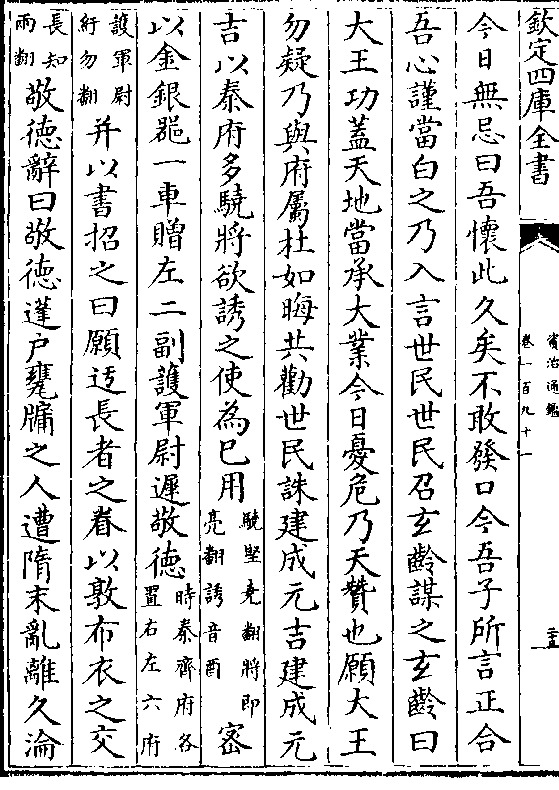 欽定四庫全書
資治通鑑
卷一百九十一
今日無忌曰吾懷此久矣不敢發口今吾子所言正合
吾心謹當白之乃入言世民世民召玄齡謀之玄齡曰
大王功蓋天地當承大業今日憂危乃天贊也願大王
勿疑乃與府屬杜如晦共勸世民誅建成元吉建成元
吉以秦府多驍將欲誘之使為已用驍堅堯翻將即亮翻誘音酉密
以金銀噐一車贈左二副護軍尉遲敬徳時秦齊府各置右左六府護軍尉紆勿翻
并以書招之曰願迃長者之眷以敦布衣之交
長知兩翻敬徳辭曰敬徳蓬户甕牖之人遭隋末亂離久淪